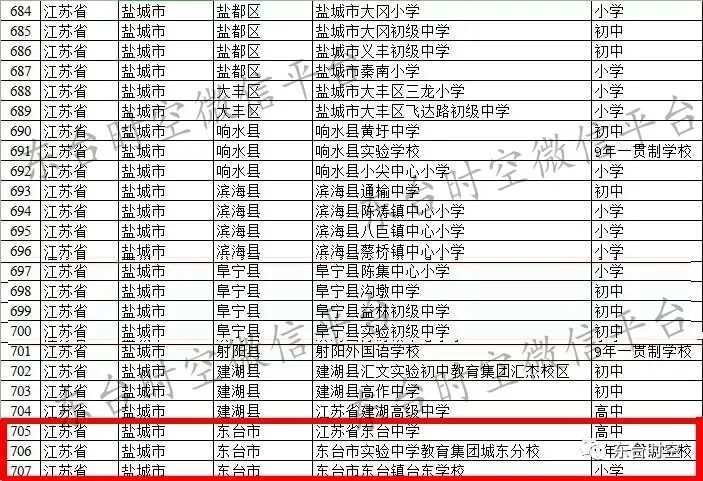 684 江苏省 盐城市 盐都区 盐城市大冈小学 小学
685 江苏省 盐城市 盐都区 盐城市大冈初级中学 初中
686 江苏省 盐城市 盐都区 盐城市义丰初级中学 初中
687 江苏省 盐城市 盐都区 盐城市秦南小学 小学
688 江苏省 盐城市 大丰区 盐城市大丰区三龙小学 小学
689 江苏省 盐城市 大丰区 盐城市大丰区飞达路初级中学 初中
690 江苏省 盐城市 响水县 响水县黄圩中学 初中
691 江苏省 盐城市 响水县 响水县实验学校 9年一贯制学校
692 江苏省 盐城市 响水县 响水县小尖中心小学 小学
693 江苏省 盐城市 滨海县 滨海县通榆中学 初中
694 江苏省 盐城市 滨海县 滨海县陈涛镇中心小学 小学
695 江苏省 盐城市 滨海县 滨海县八巨镇中心小学 小学
696 江苏省 盐城市 滨海县 滨海县蔡桥镇中心小学 小学
697 江苏省 盐城市 阜宁县 阜宁县陈集中心小学 小学
698 江苏省 盐城市 阜宁县 阜宁县沟墩中学 初中
699 江苏省 盐城市 阜宁县 阜宁县益林初级中学 初中
700 江苏省 盐城市 阜宁县 阜宁县实验初级中学 初中
701 江苏省 盐城市 射阳县 射阳外国语学校 9年一贯制学校
702 江苏省 盐城市 建湖县 建湖县汇文实验初中教育集团汇杰校区 初中
703 江苏省 盐城市 建湖县 建湖县高作中学 初中
704 江苏省 盐城市 建湖县 江苏省建湖高级中学 高中
705 江苏省 盐城市 东台市 江苏省东台中学 高中
706 江苏省 盐城市 东台市 东台市实验中学教育集团城东分校 9年一贯制学校
707 江苏省 盐城市 东台市 东台市东台镇台东学校 小学
东台时空微信平台
东台时空微信平台
东台时空微信平台
东台时空微信平台
东台时空